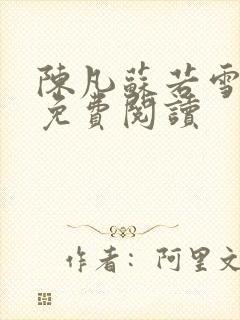 陳凡蘇若雪
免費閱讀
作者：阿里文